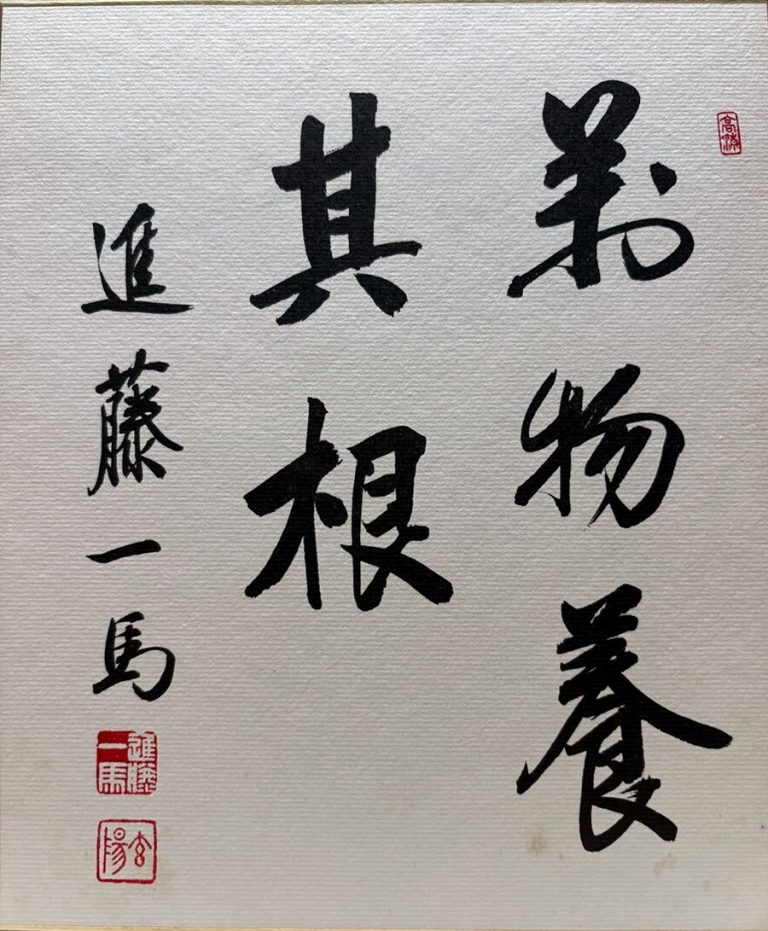 萬物養
其根
進藤一馬
進藤一馬
玄陽